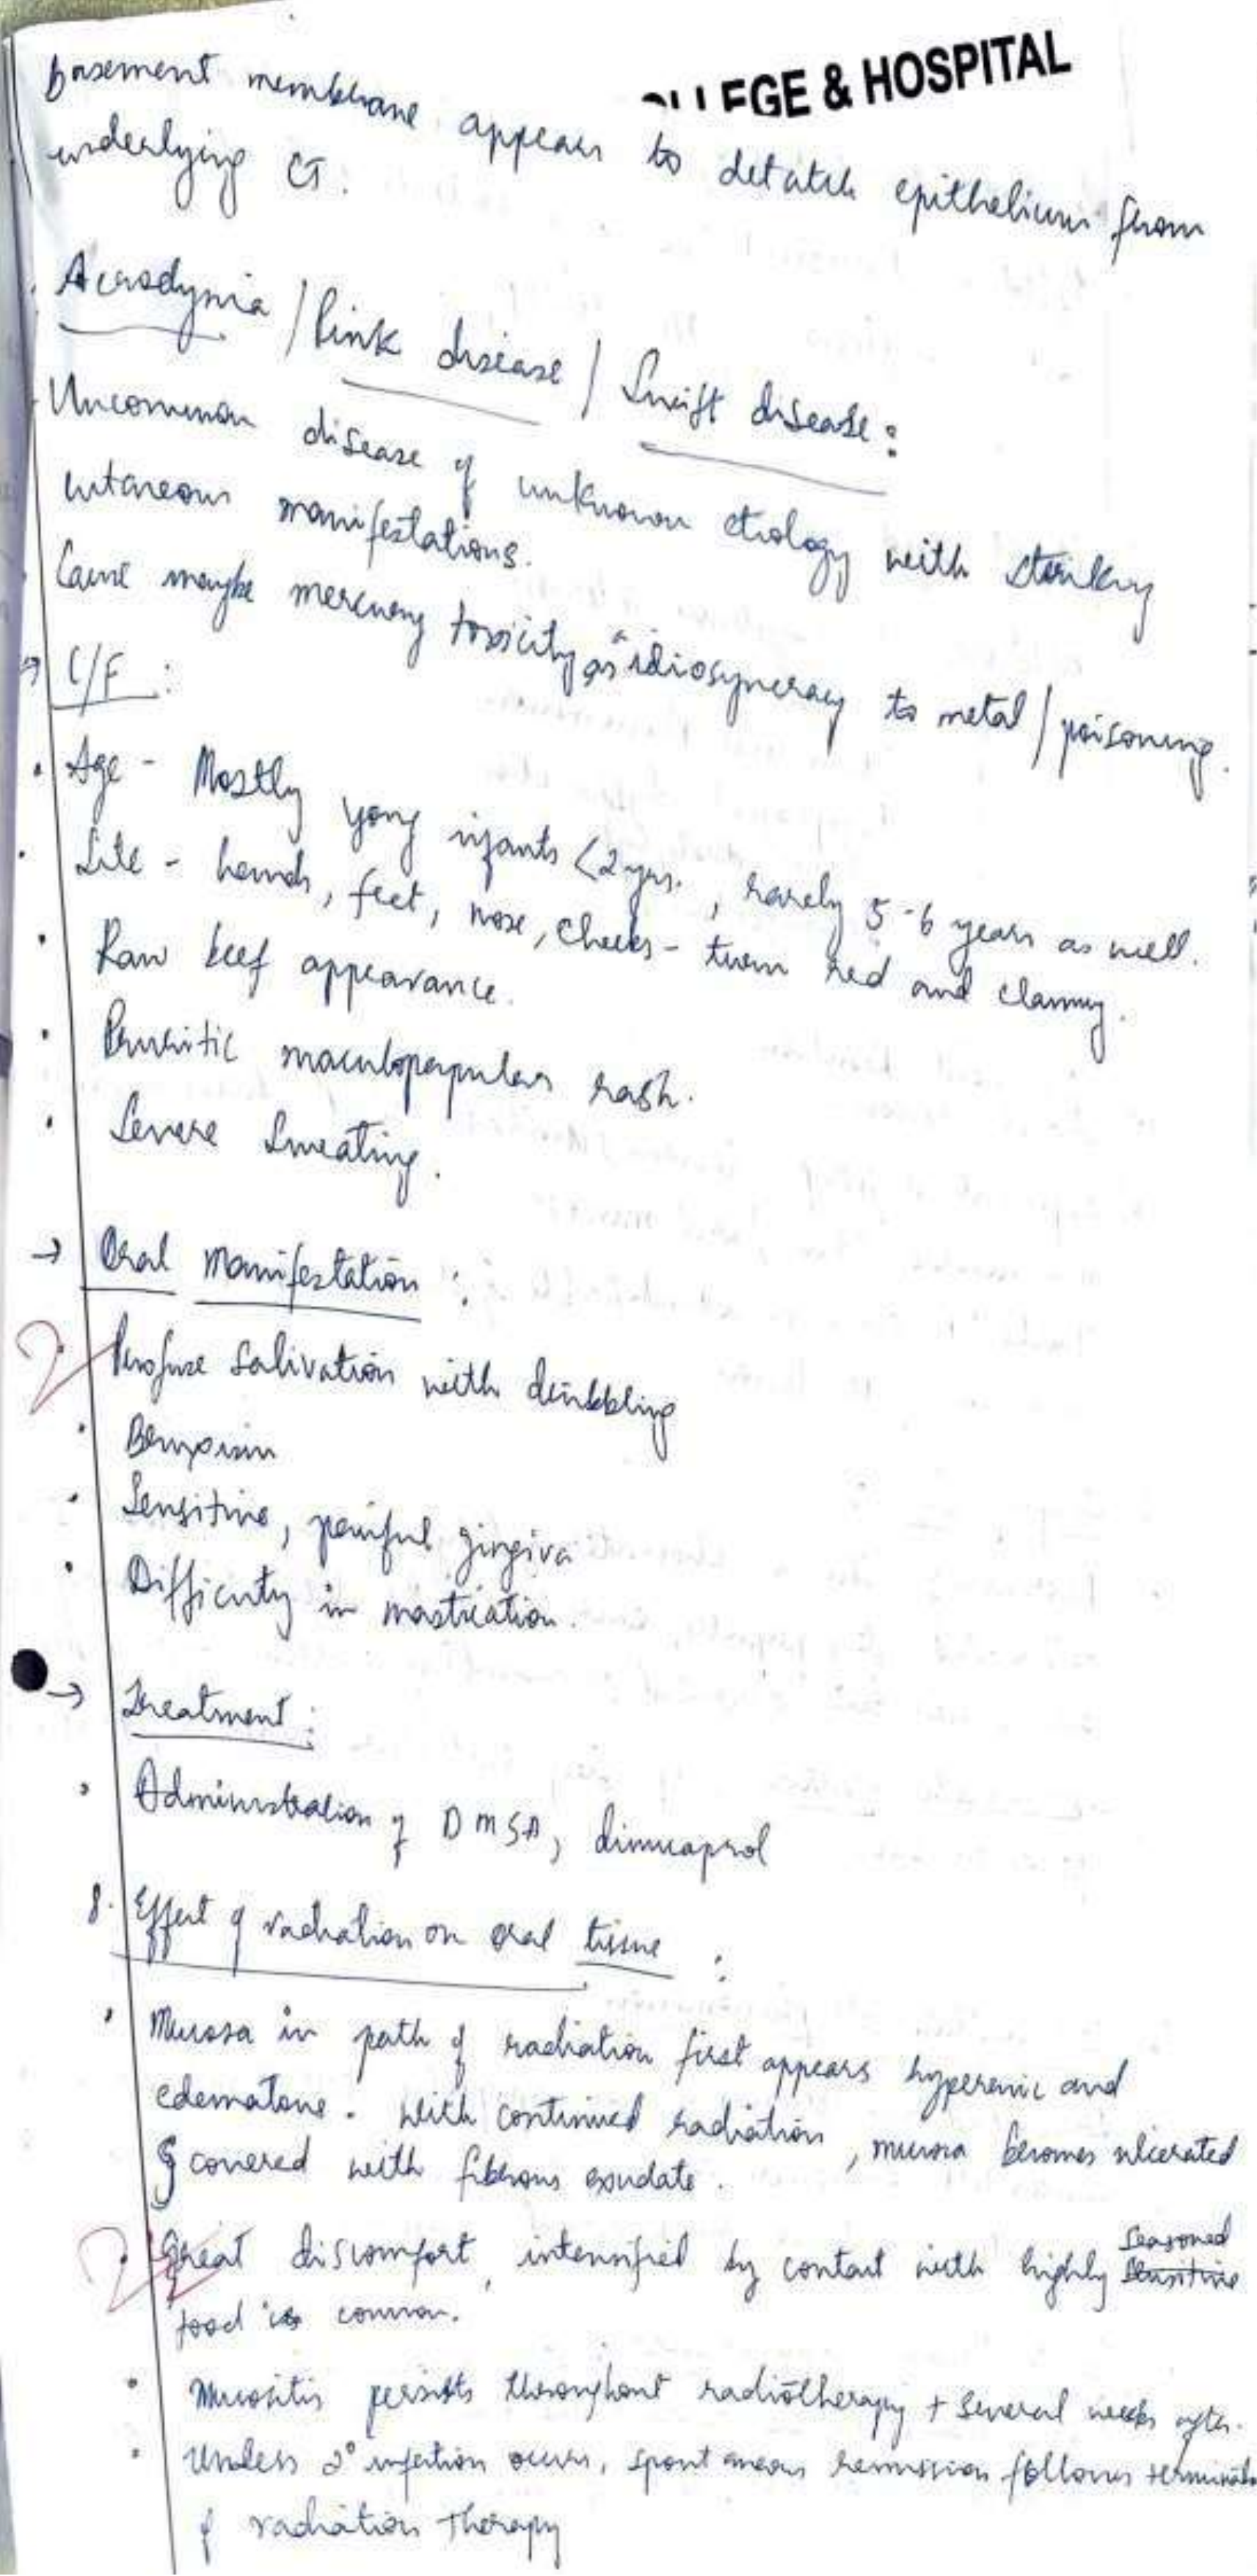 LLEGE & HOSPITAL
basement membrane appears to detatch epithelium from
underlying CT.
Acrodynia / Pink disease / Swift disease:
Uncommon disease of unknown etiology with striking
cutaneous manifestations.
Cause maybe mercury toxicity as idiosyncracy to metal / poisoning.
→ C/F :
• Age - Mostly yong infants <2yrs. , rarely 5-6 years as well.
• Site - hands, feet, nose, cheeks - turn red and clammy.
• Raw beef appearance.
• Pruritic maculopapular rash.
• Severe Sweating.
→ Oral Manifestation :
2 • Profuse Salivation with dribbling
• Bruxism
• Sensitive, painful gingiva
• Difficulty in mastication.
→ Treatment :
• Administration of DMSA, dimucaprol
8. Effect of radiation on oral tissue :
• Mucosa in path of radiation first appears hyperemic and
edematous. With continued radiation, mucosa becomes ulcerated
& covered with fibrous exudate.
• Great discomfort, intensified by contact with highly seasoned
food is common.
• Mucositis persists throughout radiotherapy + Several weeks after.
• Unless 2° infection occurs, spontaneous remission follows
of radiation therapy